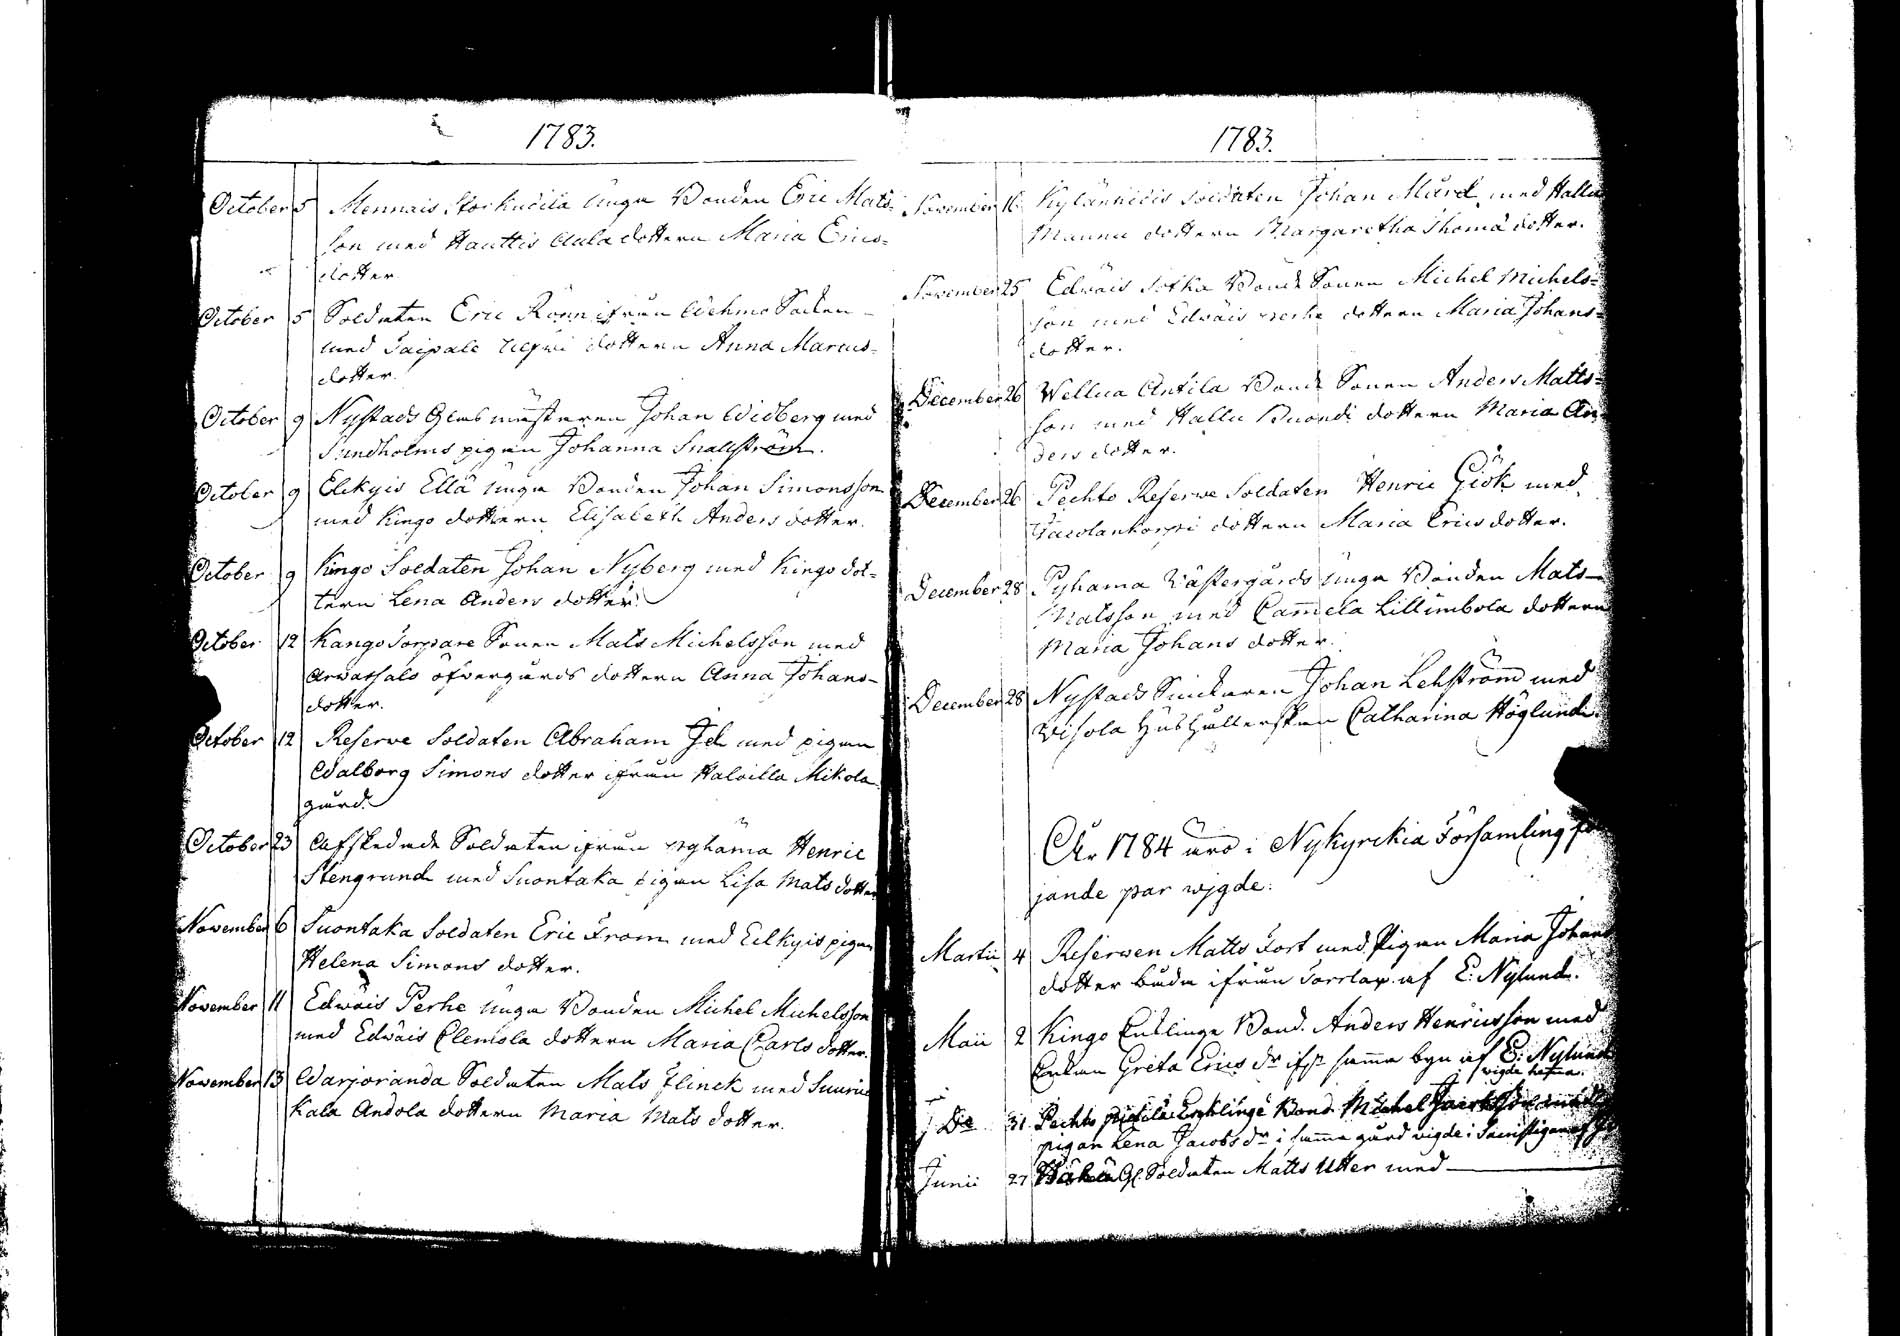 1783.
October 5 Mennais Storkucila unga Bonden Eric Mats-
son med Hauttis Aula dottern Maria Erics-
dotter.
October 5 Soldaten Eric Rönn ifrån Wehmo Socken
med Taipale dottern Anna Marcus-
dotter.
October 9 Nystads Glasmästaren Johan Widberg med
Sundholms pigan Johanna Snallström.
October 9 Elckyis Ellä unga Bonden Johan Simonsson
med Kingo dottern Elisabeth Anders dotter.
October 9 Kingo Soldaten Johan Nyberg med Kingo dot-
tern Lena Anders dotter.
October 12 Kango Torpare Sonen Mats Michelsson med
Arwassalo öfvergårds dottern Anna Johans-
dotter.
October 12 Reserve Soldaten Abraham Id med pigan
Walborg Simons dotter ifrån Haloilla Mikola
gård.
October 23 Afskedade Soldaten ifrån Pyhäma Henric
Stengrund med Suontaka pigan Lisa Mats dotter
November 6 Suontaka Soldaten Eric From med Eelkyis pigan
Helena Simons dotter.
November 11 Edwäis Perhe unga Bonden Michel Michelsson
med Edwäis Clemola dottern Maria Carls dotter.
November 13 Warjoranda Soldaten Mats Flinck med Suuri-
kala Andola dottern Maria Mats dotter.
1783.
November 16 Kylänkidis Soldaten Johan Mård med Hallu
Mannu dottern Margaretha Thomä dotter.
November 25 Edwäis Sotka Bonde Sonen Michel Michels-
son med Edwäis Perhe dottern Maria Johans-
dotter.
December 26 Wellua Antila Bonde Sonen Anders Matts-
son med Hallu Buondi dottern Maria An-
ders dotter.
December 26 Pechto Reserve Soldaten Henric Giök med
dottern Maria Erics dotter.
December 28 Pyhama Västergårds unga Bonden Mats
Matsson med Camela Lillimbola dottern
Maria Johans dotter.
December 28 Nystads Snickaren Johan Lehström med
Visola Hushållerskan Catharina Höglund.
År 1784 äro i Nykyrckia Församling föl
jande par wigde:
Martii 4 Reserven Matts Fort med Pigan Maria Johans
dotter båda ifrån Torrlax af E: Nylund.
Maii 2 Kingo Enklinge Bond. Anders Henricsson med
Enkan Greta Erics dr ifr samma byn af E: Nylund
wigde hemma.
De 31 Pechto Enklinge Bond. Michel
pigan Lena Jacobs dr i samma gård wigde i Sacristigan af
Junii 27 Gl. Soldaten Matts Utter med